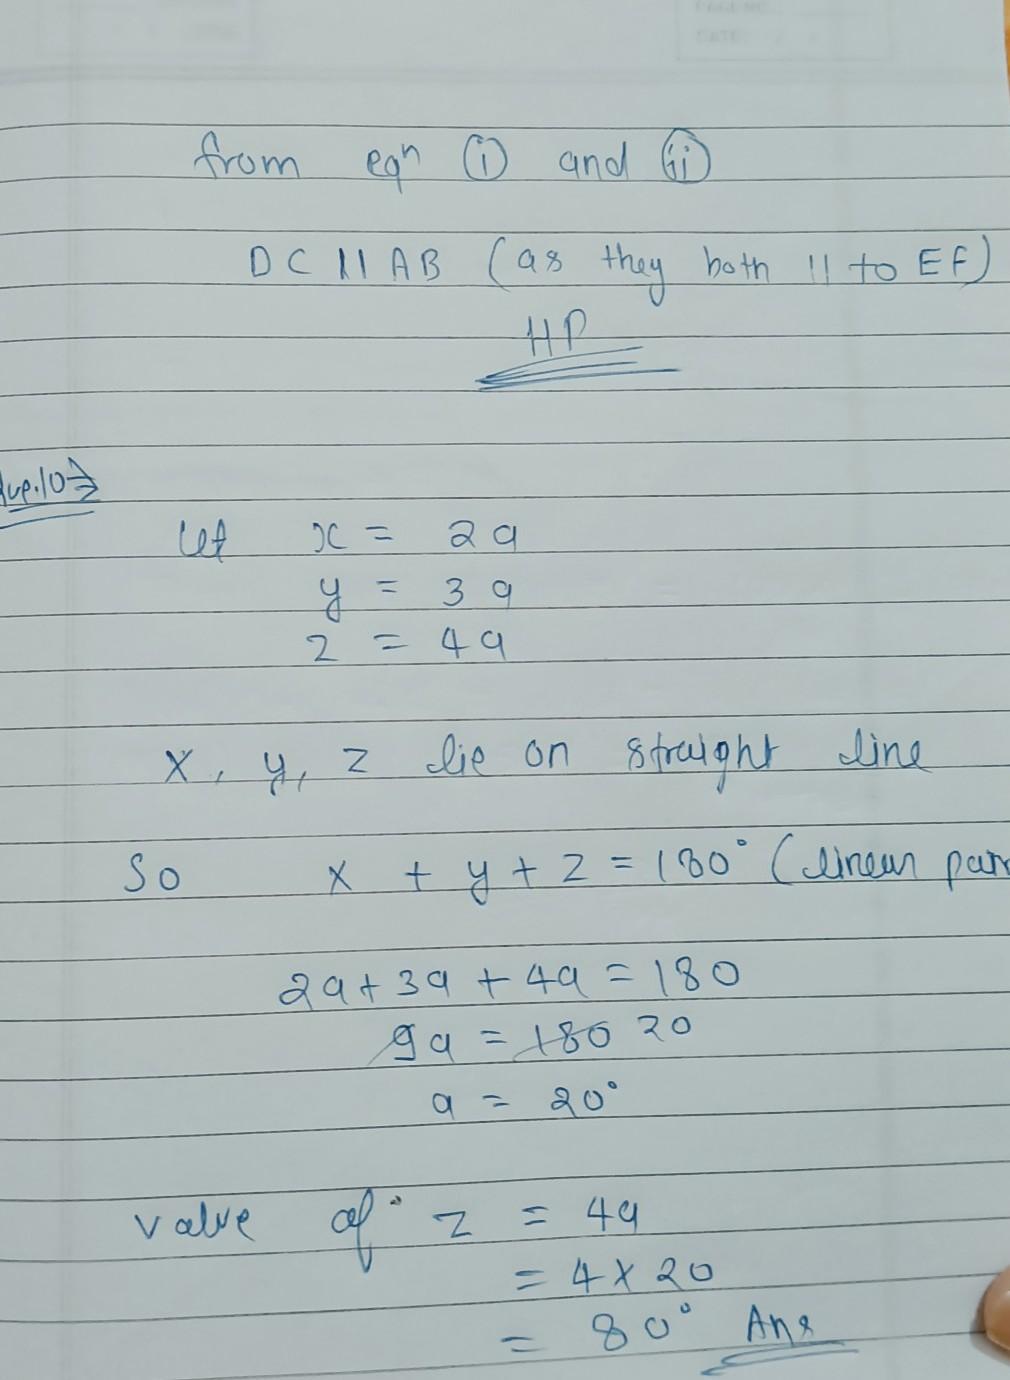 from eqn (i) and (ii)
DC || AB (as they both || to EF)
HP
Que.10⇒
let x = 2a
y = 3a
z = 4a
x, y, z lie on straight line
So x + y + z = 180° (linear pair
2a + 3a + 4a = 180
9a = 180 20
a = 20°
value of z = 4a
= 4 x 20
= 80° Ans